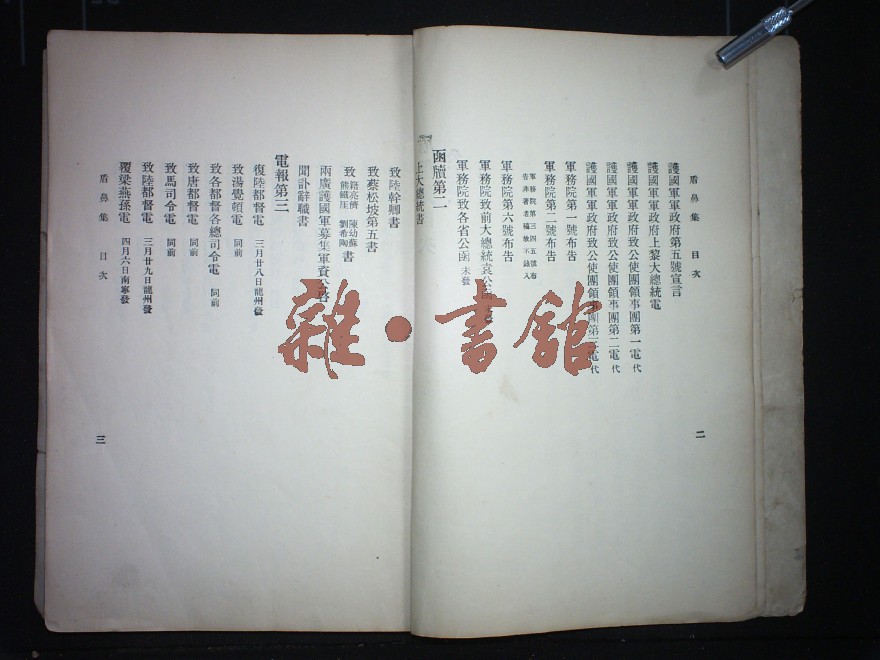 盾鼻集 目次
護國軍軍政府第五號宣言
護國軍軍政府上黎大總統電
護國軍軍政府致公使團領事團第一電 代
護國軍軍政府致公使團領事團第二電 代
護國軍軍政府致公使團領事團第三電 代
軍務院第一號布告
軍務院第二號布告
軍務院第三四五號布
告非著者稿故不錄入
軍務院第六號布告
軍務院致前大總統袁公函
軍務院致各省公函 未發
二
函牘第二
上大總統書
致陸幹卿書
致蔡松坡第五書
致 籍亮儕 陳幼蘇 熊鐵厓 劉希陶 書
兩廣護國軍募集軍資公啓
聞訃辭職書
電報第三
復陸都督電 三月廿八日龍州發
致湯覺頓電 同前
致各都督各總司令電 同前
致唐都督電 同前
致馬司令電 同前
致陸都督電 三月廿九日龍州發
覆梁燕孫電 四月六日南寧發
盾鼻集 目次
三
雜·書館